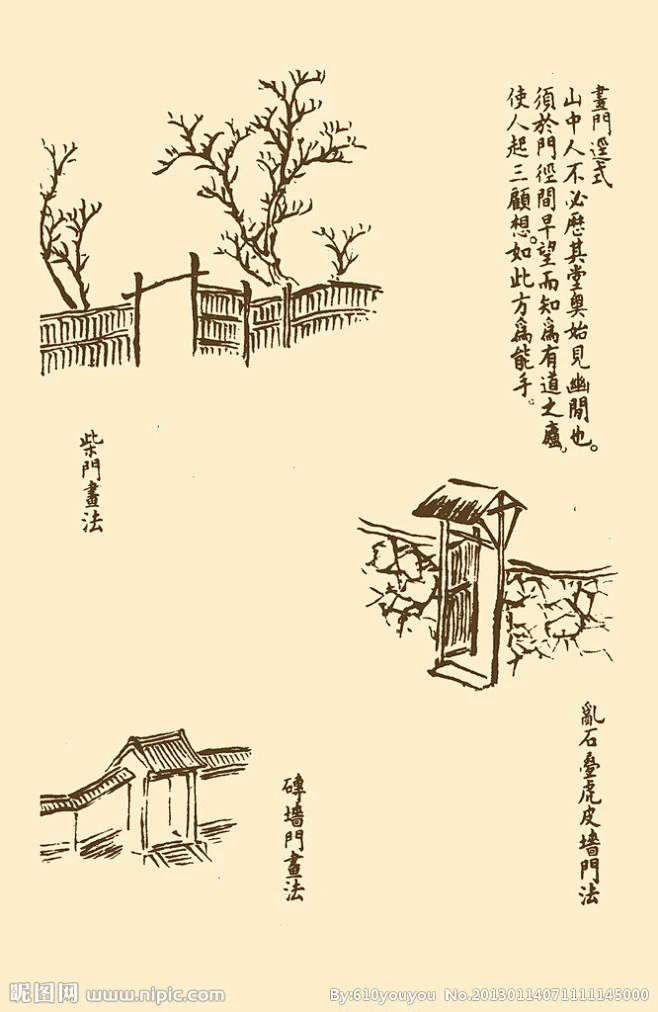 畫門逕式
山中人不必歷其堂奧始見幽閒也。
須於門徑間早望而知為有道之廬,
使人起三顧想。如此方為能手。
柴門畫法
亂石疊虎皮墻門法
磚墻門畫法
昵图网 www.nipic.com
By:610youyou No.20130114071111145000